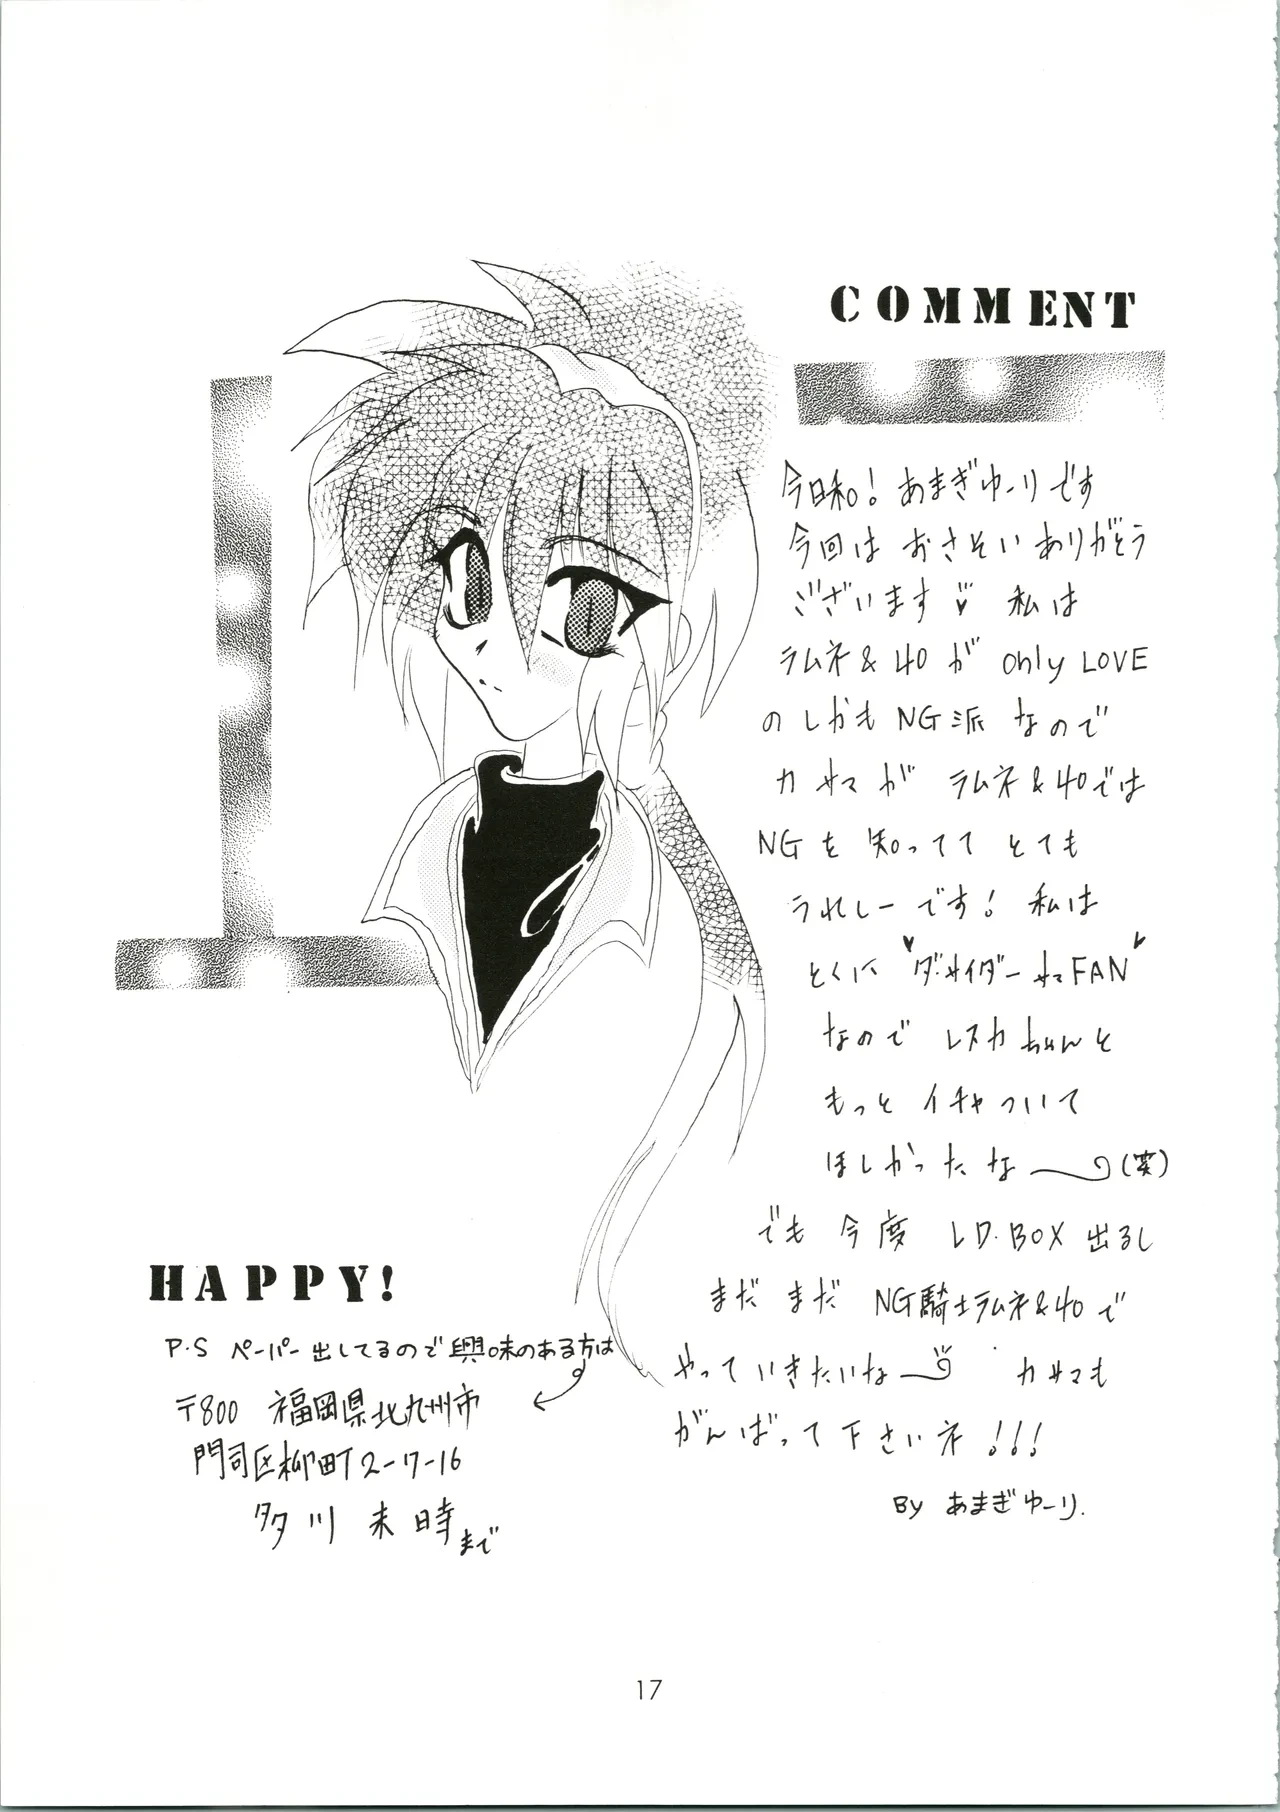 COMMENT
今日和。! あまぎゆーりです
今回は おさそい ありがとう
ございます゛♥ 私は
ラムネ&40が only LOVE
の しかも NG派 なので
カサマが ラムネ&40では
NGを 知ってて とても
うれしーです! 私は
とくに "ダ・サイダーサマFAN"
なので レスカちゃんと
もっと イチャついて
ほしかったな〜(笑)
でも 今度 LD.BOX 出るし
まだまだ NG騎士ラムネ&40で
やって いきたいな〜 カサマも
がんばって下さいネ!!!
By あまぎゆーり.
HAPPY!
P.S ペーパー出してるので興味のある方は
〒800 福岡県北九州市
門司区柳町2-7-16
多川 未時まで
17